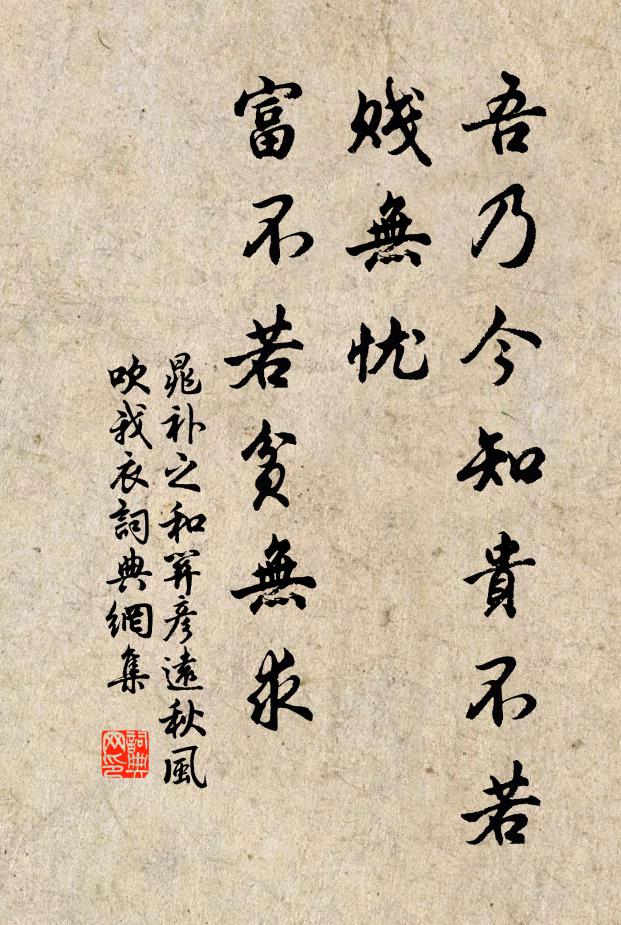 吾乃今知貴不若
賤無忧
富不若貧無求
晁补之和関彦遠秋風
吹我衣詞典網集
詞典网印